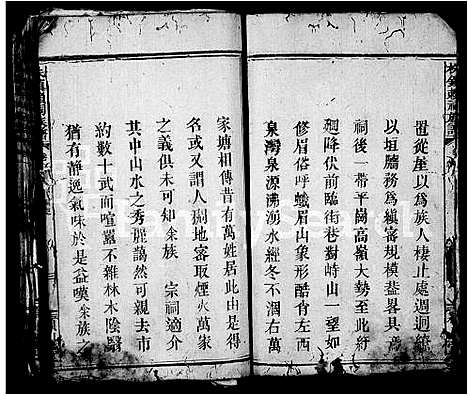 置從堊以為族人棲止處週迴繚
以垣牆務為縝審規模葢畧具焉
祠後一帶平岡高嶺大勢至此紆
廻降伏前臨街巷對峙山一望如
修眉俗呼蛾眉山象形酷肖左西
泉灣泉源沸湧水經冬不涸右萬
家塘相傳昔有萬姓居此由是得
名或又謂人稠地密取煙火萬家
之義俱未可知余族宗祠適介
其中山水之秀麗藹然可親去市
約數十武而喧囂不雜林木陰翳
猶有靜逸氣味於是益嘆余族之